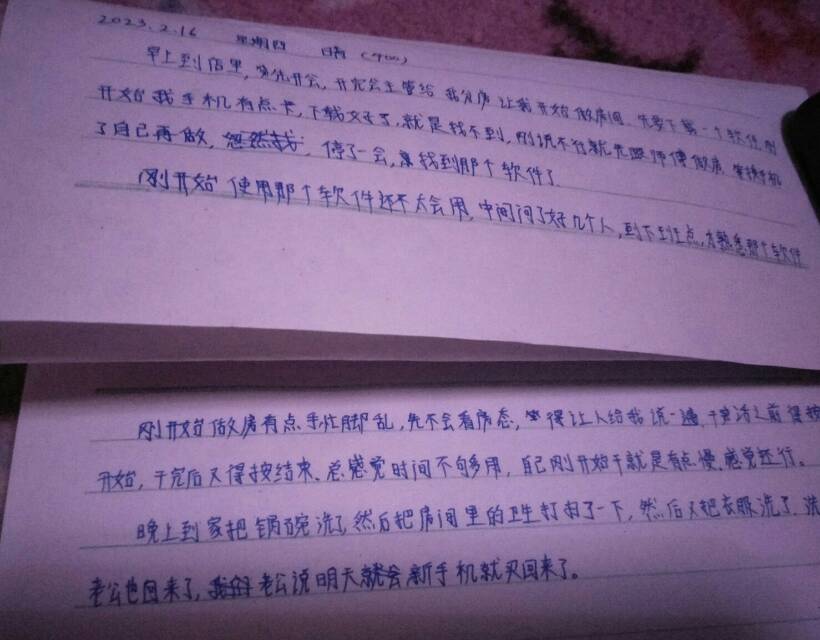 2023.2.16 星期四 晴
早上到店里,首先开会,开完会主管给我分房让我开始做房间.先要下载一个软件,刚
开始我手机有点卡,下载文了,就是找不到,刚说不行就先跟师傅做房,等换手机
了自己再做,忽然我,停了一会,找到那个软件了
刚开始使用那个软件还不太会用,中间问了好几个人,到下午点,才熟悉那个软件
刚开始做房有点手忙脚乱,先不会看房态,得让人给我说一遍,干活之前得按
开始,干完后又得按结束.总感觉时间不句多用,自己刚开始干就是有点慢,感觉还行。
晚上到家把锅碗洗了,然后把房间里的卫生打扫了一下,然后又把衣服洗了.洗
老公也回来了,老公说明天就会新手机就买回来了。